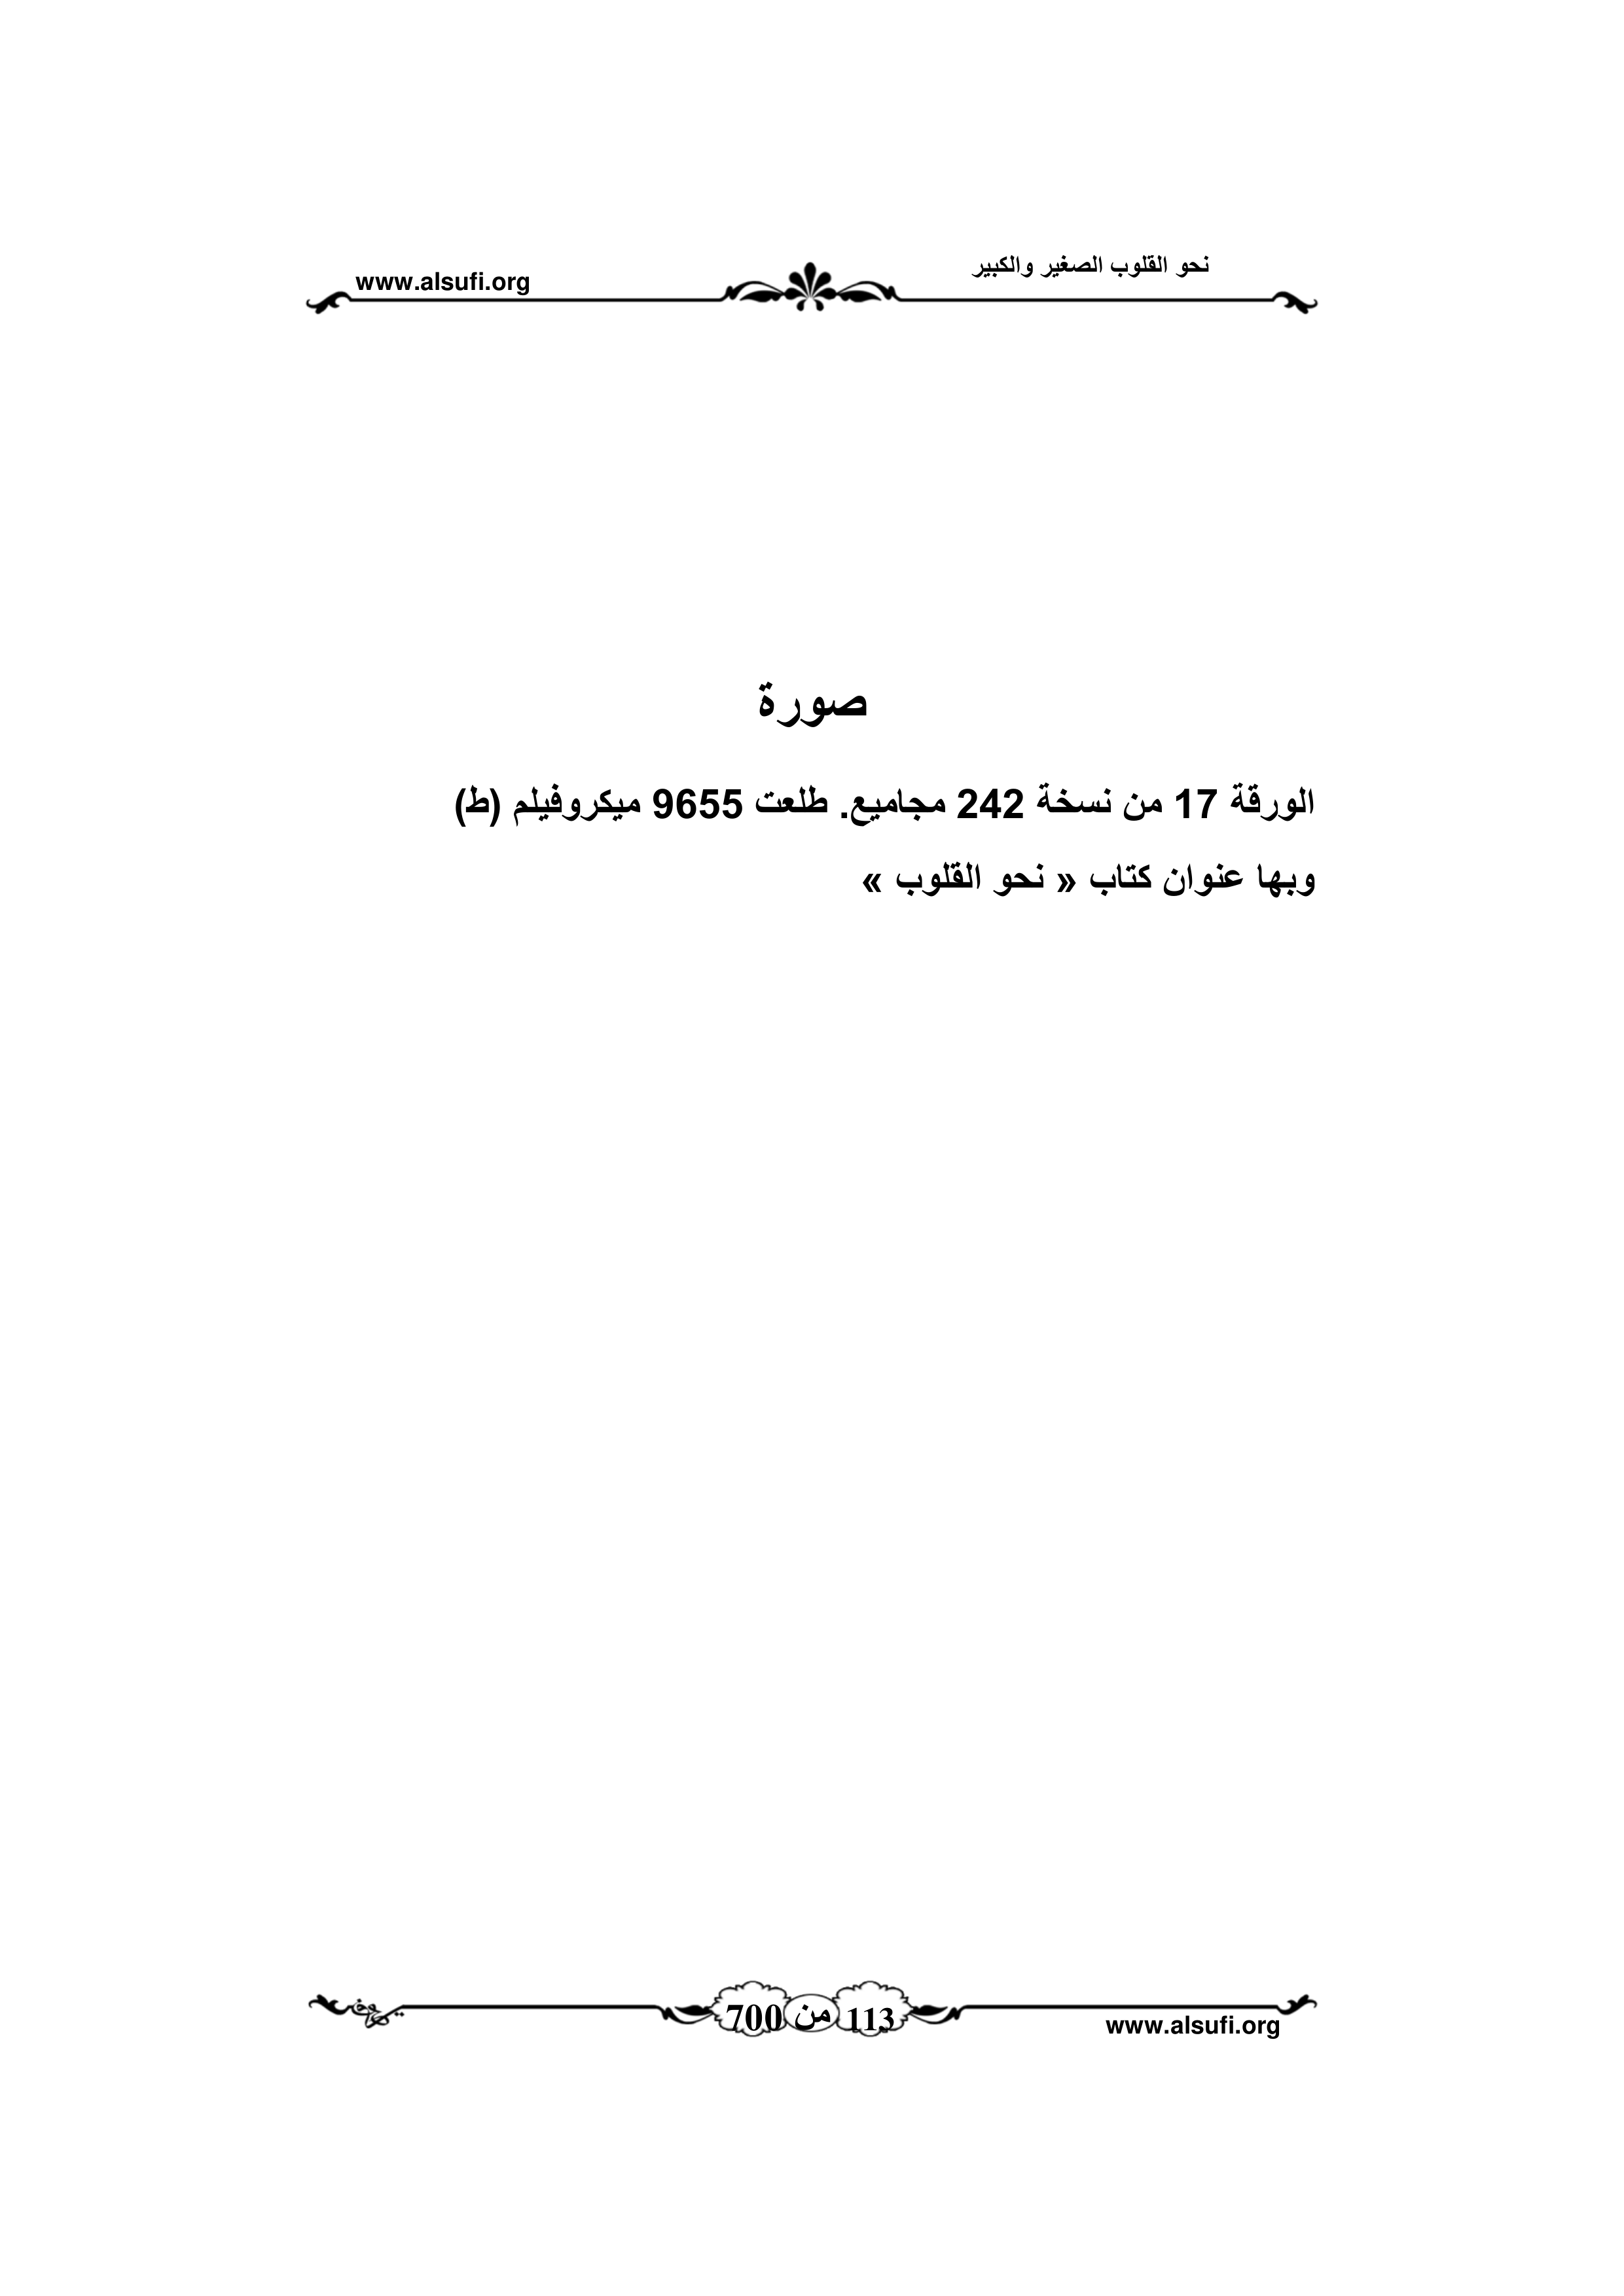 نحو القلوب الصغير والكبير
www.alsufi.org
صورة
الورقة 17 من نسخة 242 مجاميع. طلعت 9655 ميكروفيلم (ط)
وبها عنوان كتاب « نحو القلوب »
113 من 700
www.alsufi.org